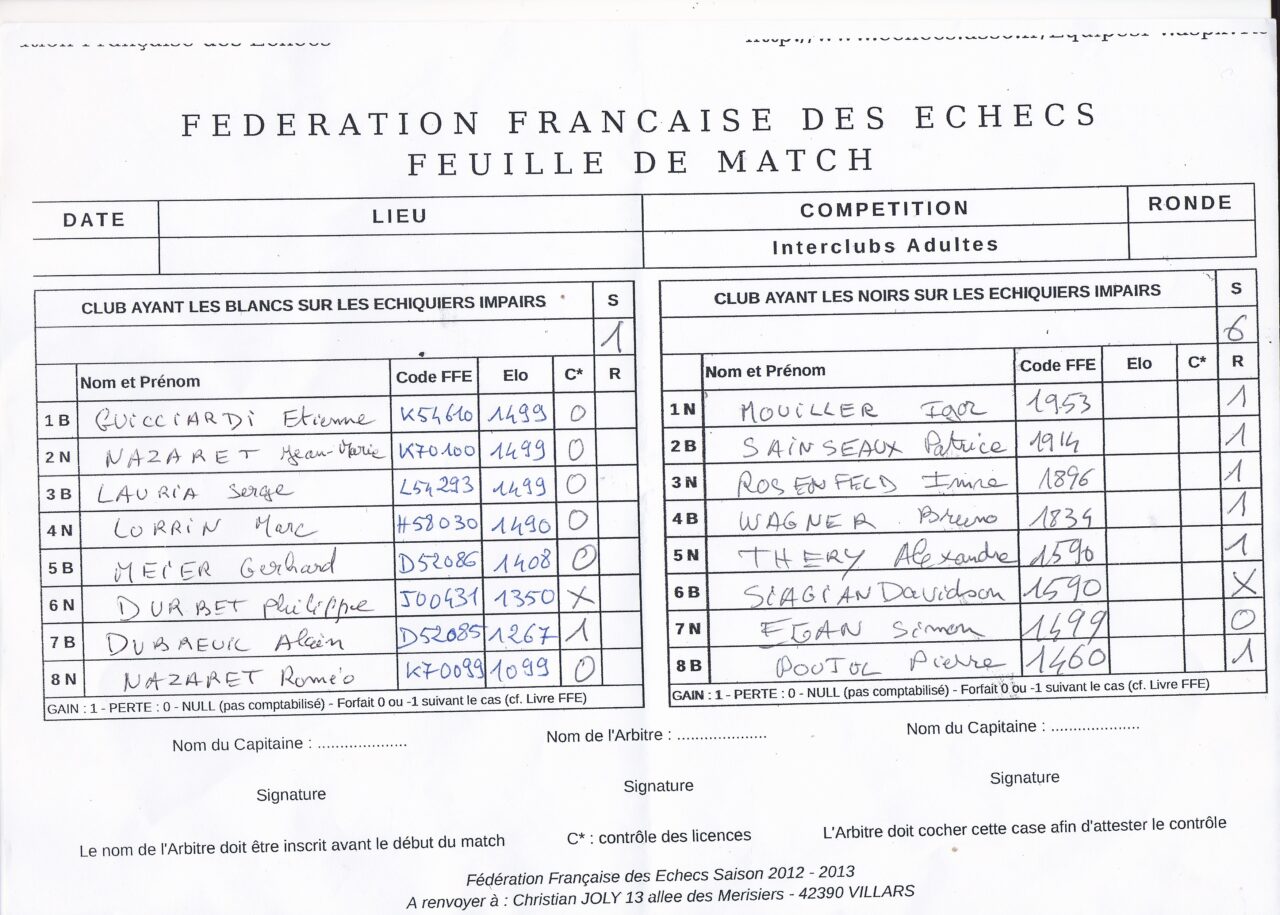 FEDERATION FRANCAISE DES ECHECS
FEUILLE DE MATCH
DATE LIEU COMPETITION RONDE
Interclubs Adultes
CLUB AYANT LES BLANCS SUR LES ECHIQUIERS IMPAIRS S
1
Nom et Prénom Code FFE Elo C* R
1 B GUICCIARDI Etienne K54610 1499 0
2 N NAZARET Jean-Marie K70100 1499 0
3 B LAURIA Serge L54293 1499 0
4 N LORRIN Marc H58030 1490 0
5 B MEIER Gerhard D52086 1408 0
6 N DURBET Philippe J00431 1350 X
7 B DUBREUIL Alain D52085 1267 1
8 N NAZARET Roméo K70099 1099 0
GAIN : 1 - PERTE : 0 - NULL (pas comptabilisé) - Forfait 0 ou -1 suivant le cas (cf. Livre FFE)
CLUB AYANT LES NOIRS SUR LES ECHIQUIERS IMPAIRS S
6
Nom et Prénom Code FFE Elo C* R
1 N MOUILLER Igor 1953 1
2 B SAINSEAUX Patrice 1914 1
3 N ROSENFELD Imre 1896 1
4 B WAGNER Bruno 1834 1
5 N THERY Alexandre 1590 1
6 B SIAGIAN Davidson 1590 X
7 N EGAN Simon 1499 0
8 B POUJOL Pierre 1460 1
GAIN : 1 - PERTE : 0 - NULL (pas comptabilisé) - Forfait 0 ou -1 suivant le cas (cf. Livre FFE)
Nom du Capitaine : .................... Nom de l'Arbitre : .................... Nom du Capitaine : ....................
Signature Signature Signature
Le nom de l'Arbitre doit être inscrit avant le début du match C* : contrôle des licences L'Arbitre doit cocher cette case afin d'attester le contrôle
Fédération Française des Echecs Saison 2012 - 2013
A renvoyer à : Christian JOLY 13 allee des Merisiers - 42390 VILLARS